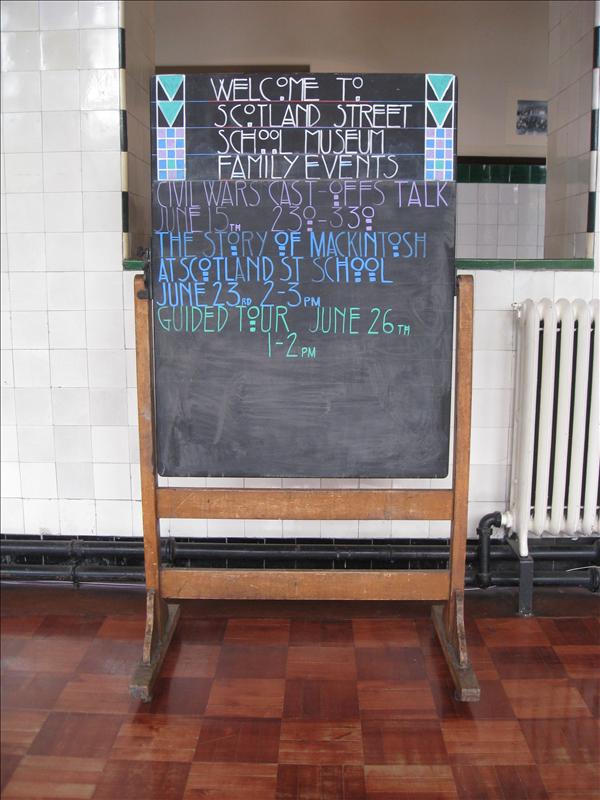 WELCOME TO
SCOTLAND STREET
SCHOOL MUSEUM
FAMILY EVENTS
CIVIL WARS CAST-OFFS TALK
JUNE 15TH 230-330
THE STORY OF MACKINTOSH
AT SCOTLAND ST SCHOOL
JUNE 23RD 2-3PM
GUIDED TOUR JUNE 26TH
1-2PM